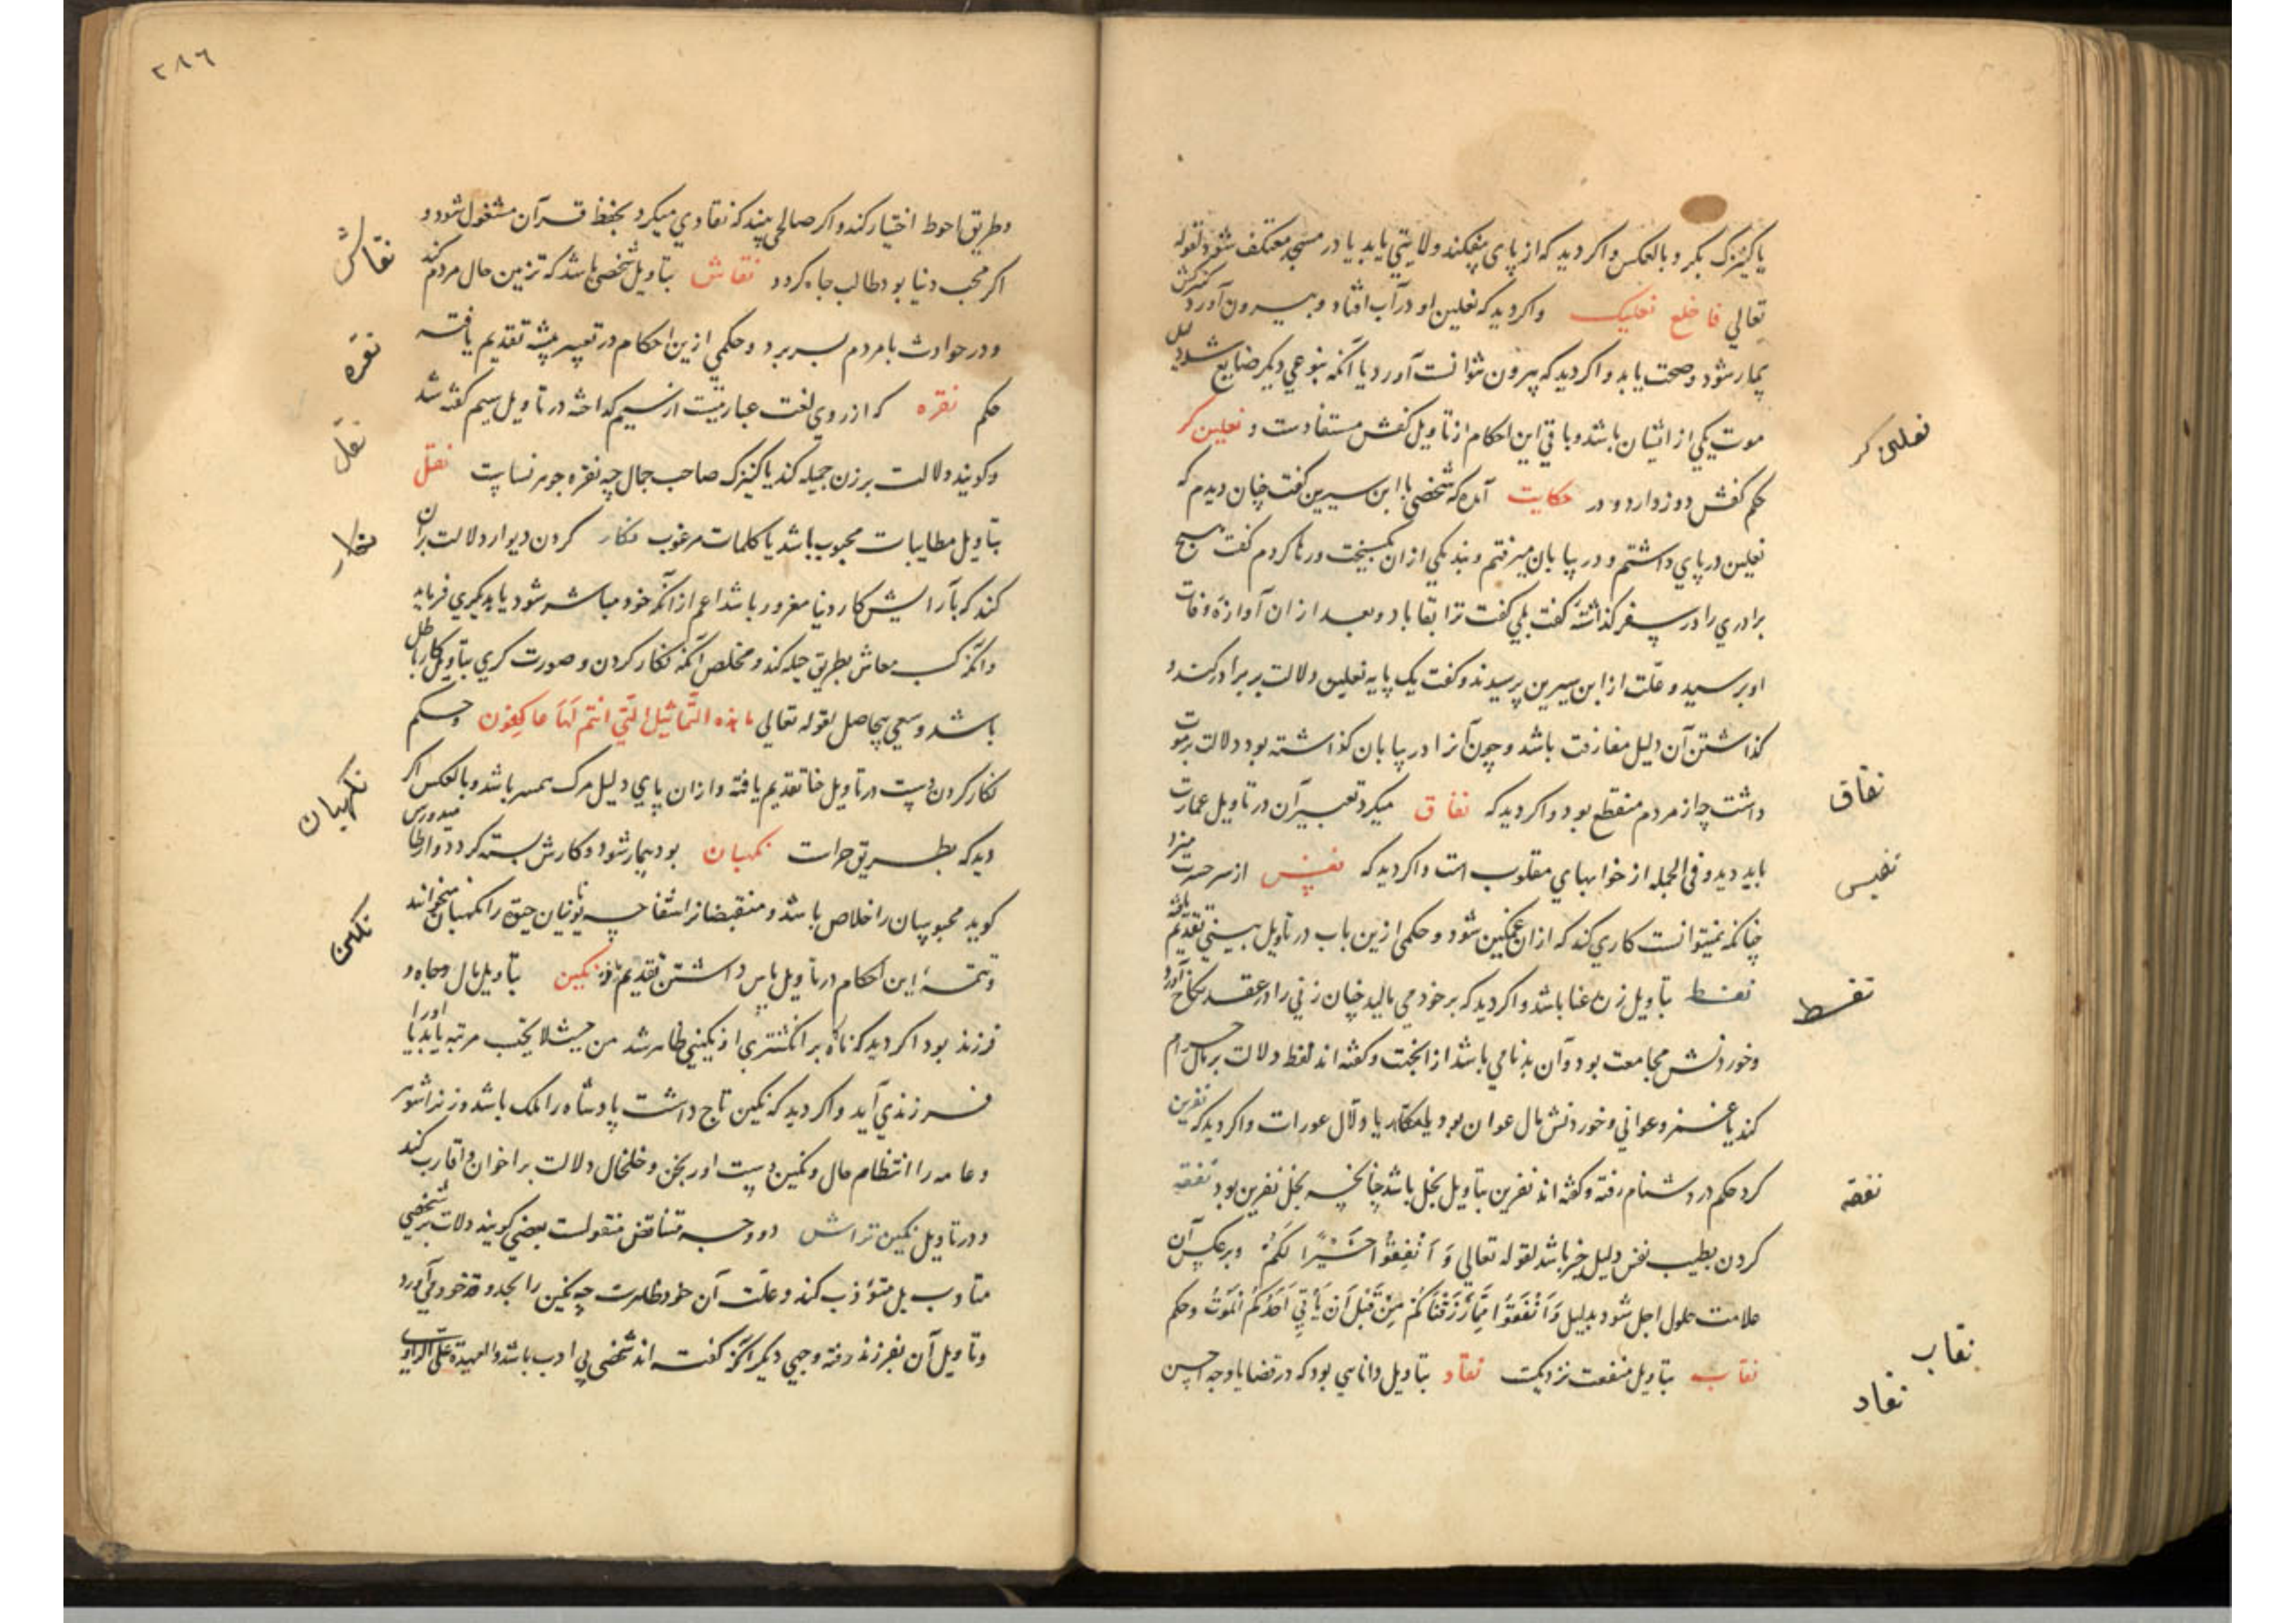 یا کنیزک بکر و بالعکس و اکر دید که از پای بیفکند ولایتی یابد یا در مسجد معتکف شود لقوله
تعالی فاخلع نعلیک واکر دید که نعلین او در آب افتاد و بیرون آورد کنیزکش
بیمار شود و صحت یابد و اکر دید که بیرون نتوانست آورد یا آنکه بنوعی دیکر ضایع شد دلیل
موت یکی از ایشان باشد و باقی این احکام از تأویل کفش مستفادست و نعلین کر
نعلین کر
حکم کفش دوز دارد و در حکایت آمده که شخصی با ابن سیرین کفت چنان دیدم که
نعلین در پای داشتم و در بیابان میرفتم و بند یکی ازان بکسیخت و رها کردم کفت هیچ
برادری را در سفر کذاشتهٔ کفت بلی کفت ترا بقا باد و بعد ازان آوازهٔ وفات
او برسید و علت از ابن سیرین پرسیدند و کفت یک پایه نعلین دلالت بر برادر کند و
کذاشتن آن دلیل مفارقت باشد و چون آنرا در بیابان کذاشته بود دلالت بر موت
داشت چه از مردم منقطع بود و اکر دید که نفاق میکرد تعبیر آن در تأویل عمارت
نفاق
باید دید و فی الجمله از خوابهای مقلوب است و اکر دید که نفیس از سر حسرت میزد
نفیس
چنانکه نمیتوانست کاری کند که ازان غمکین شود و حکمی ازین باب در تأویل بینی تقدیم یافته
نفط بتأویل زن باشد و اکر دید که بر خود می مالید چنان زنی را در عقد نکاح آورد
نفط
و خوردنش مجامعت بود و آن بدنامی باشد از انجهت و کفته اند نفط دلالت بر مال حرام
کند یا غمز و عوانی و خوردنش مال عوان بود یا مکار یا دلال عورات و اکر دید که نفرین
کرد حکم در دشنام رفته و کفته اند نفرین بتأویل بخل باشد چنانچه بخل نفرین بود نفقه
نفقه
کردن بطیب نفس دلیل خیر باشد لقوله تعالی وَ اَنْفِقُوا خَیْرًا لَکُمْ و برعکس آن
علامت حلول اجل شود بدلیل وَاَنْفِقُوا مِمَّا رَزَقْنَاکُمْ مِنْ قَبْلِ اَنْ یَأْتِیَ اَحَدَکُمُ الْمَوْتُ و حکم
نقاب بتأویل منفعت نزدیکست نقاد بتأویل دانایی بود که در قضایا وجه احسن
نقاب
نقاد
۲۸۶
و طریق احوط اختیار کند و اکر صالحی بیند که نقادی میکرد بحفظ قرآن مشغول شود و
اکر محب دنیا بود طالب جاه کردد نقاش بتأویل شخصی باشد که تزیین حال مردم کند
نقاش
و در حوادث با مردم بسر برد و حکمی ازین احکام در تعبیر پیشه تقدیم یافته
حکم نقره که از روی لغت عبارتیست از سیم کداخته در تأویل سیم کفته شد
نقره
و کویند دلالت بر زن جمیله کند یا کنیزک صاحب جمال چه نقره جوهر نساست نقل
نقل
بتأویل مطایبات محبوب باشد یا کلمات مرغوب نکار کردن دیوار دلالت بر آن
نکار
کند که بآرایش کار دنیا مغرور باشد اعم از آنکه خود مباشر شود یا بدیکری فرماید
وانکه کسب معاش بطریق حیله کند و مخلص آنکه نکار کردن و صورت کری بتأویل کار باطل
باشد و سعی بیحاصل لقوله تعالی ما هذه التَّماثیل الَّتی انتم لَهَا عاکِفون و حکم
نکار کردن دست در تأویل حنا تقدیم یافته و ازان پای دلیل مرک همسر باشد و بالعکس اکر
دید که بطریق حراست نکهبان بود بیمار شود و کارش بسته کردد و ارطامیدورس
نکهبان
کوید محبوسان را خلاص باشد و منقبضانرا اشفا چه یونانیان حق را نکهبان میخوانند
و تتمهٔ این احکام در تأویل پاس داشتن تقدیم یافته نکین بتأویل مال و جاه و
نکین
فرزند بود اکر دید که ناکاه بر انکشتری او نکینی ظاهر شد من حیث لا یحتسب مرتبه یابد یا او را
فرزندی آید و اکر دید که نکین تاج داشت پادشاه را ملک باشد و زنرا شوهر
و عامه را انتظام حال و نکین دست اورنجن و خلخال دلالت بر اخوان و اقارب کند
و در تأویل نکین تراش دو وجه متناقض منقولست بعضی کویند دلالت بر شخصی
متأدب بل مؤدب کند و علت آن خود ظاهرست چه نکین را بجد و قد خود می آورد
و تأویل آن بفرزند رفته وجهی دیکر آنکه کفته اند شخصی بی ادب باشد والعهدة علی الراوی